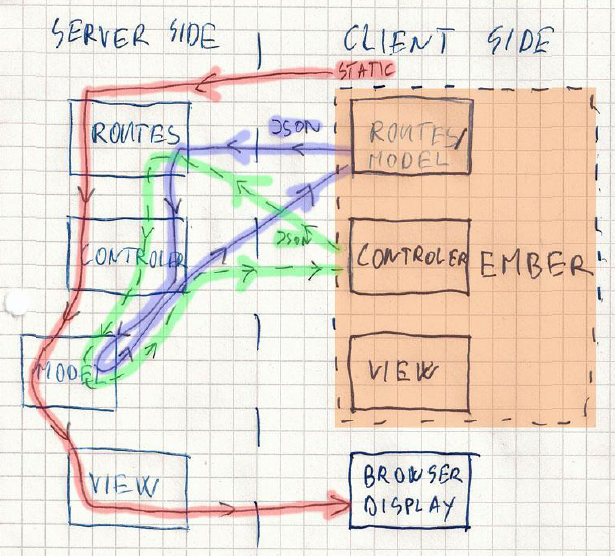 SERVER SIDE
CLIENT SIDE
STATIC
ROUTES
JSON
ROUTES/
MODEL
CONTROLER
JSON
CONTROLER
EMBER
MODEL
VIEW
VIEW
BROWSER
DISPLAY